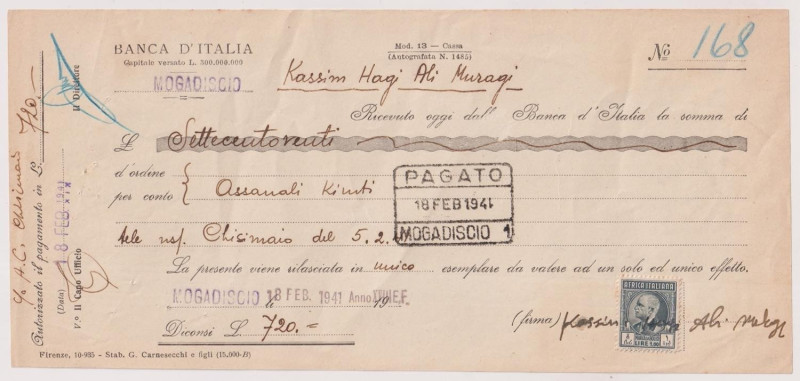 BANCA D'ITALIA
Capitale versato L. 300.000.000
MOGADISCIO
Mod. 13 — Cassa
(Autografata N. 1485)
No 168
Kassim Hagi Ali Muragi
Ricevuto oggi dall' Banca d'Italia la somma di
L Settecentoventi
d'ordine
per conto
Assanali Kimti
PAGATO
18 FEB 1941
MOGADISCIO 1
tele nsf. Chisimaio del 5.2.
La presente viene rilasciata in unico esemplare da valere ad un solo ed unico effetto.
MOGADISCIO li 18 FEB. 1941 Anno XVIII E.F. 19
Diconsi L 720.=
(firma) Kassim Ali
AFRICA ITALIANA
LIRE
Firenze, 10-935 - Stab. G. Carnesecchi e figli (15.000-B)
c/ A.C. Chisimaio
Autorizzato il pagamento in L. 720.—
(Data) 18 FEB 1941
Vo Il Capo Ufficio
Il Direttore